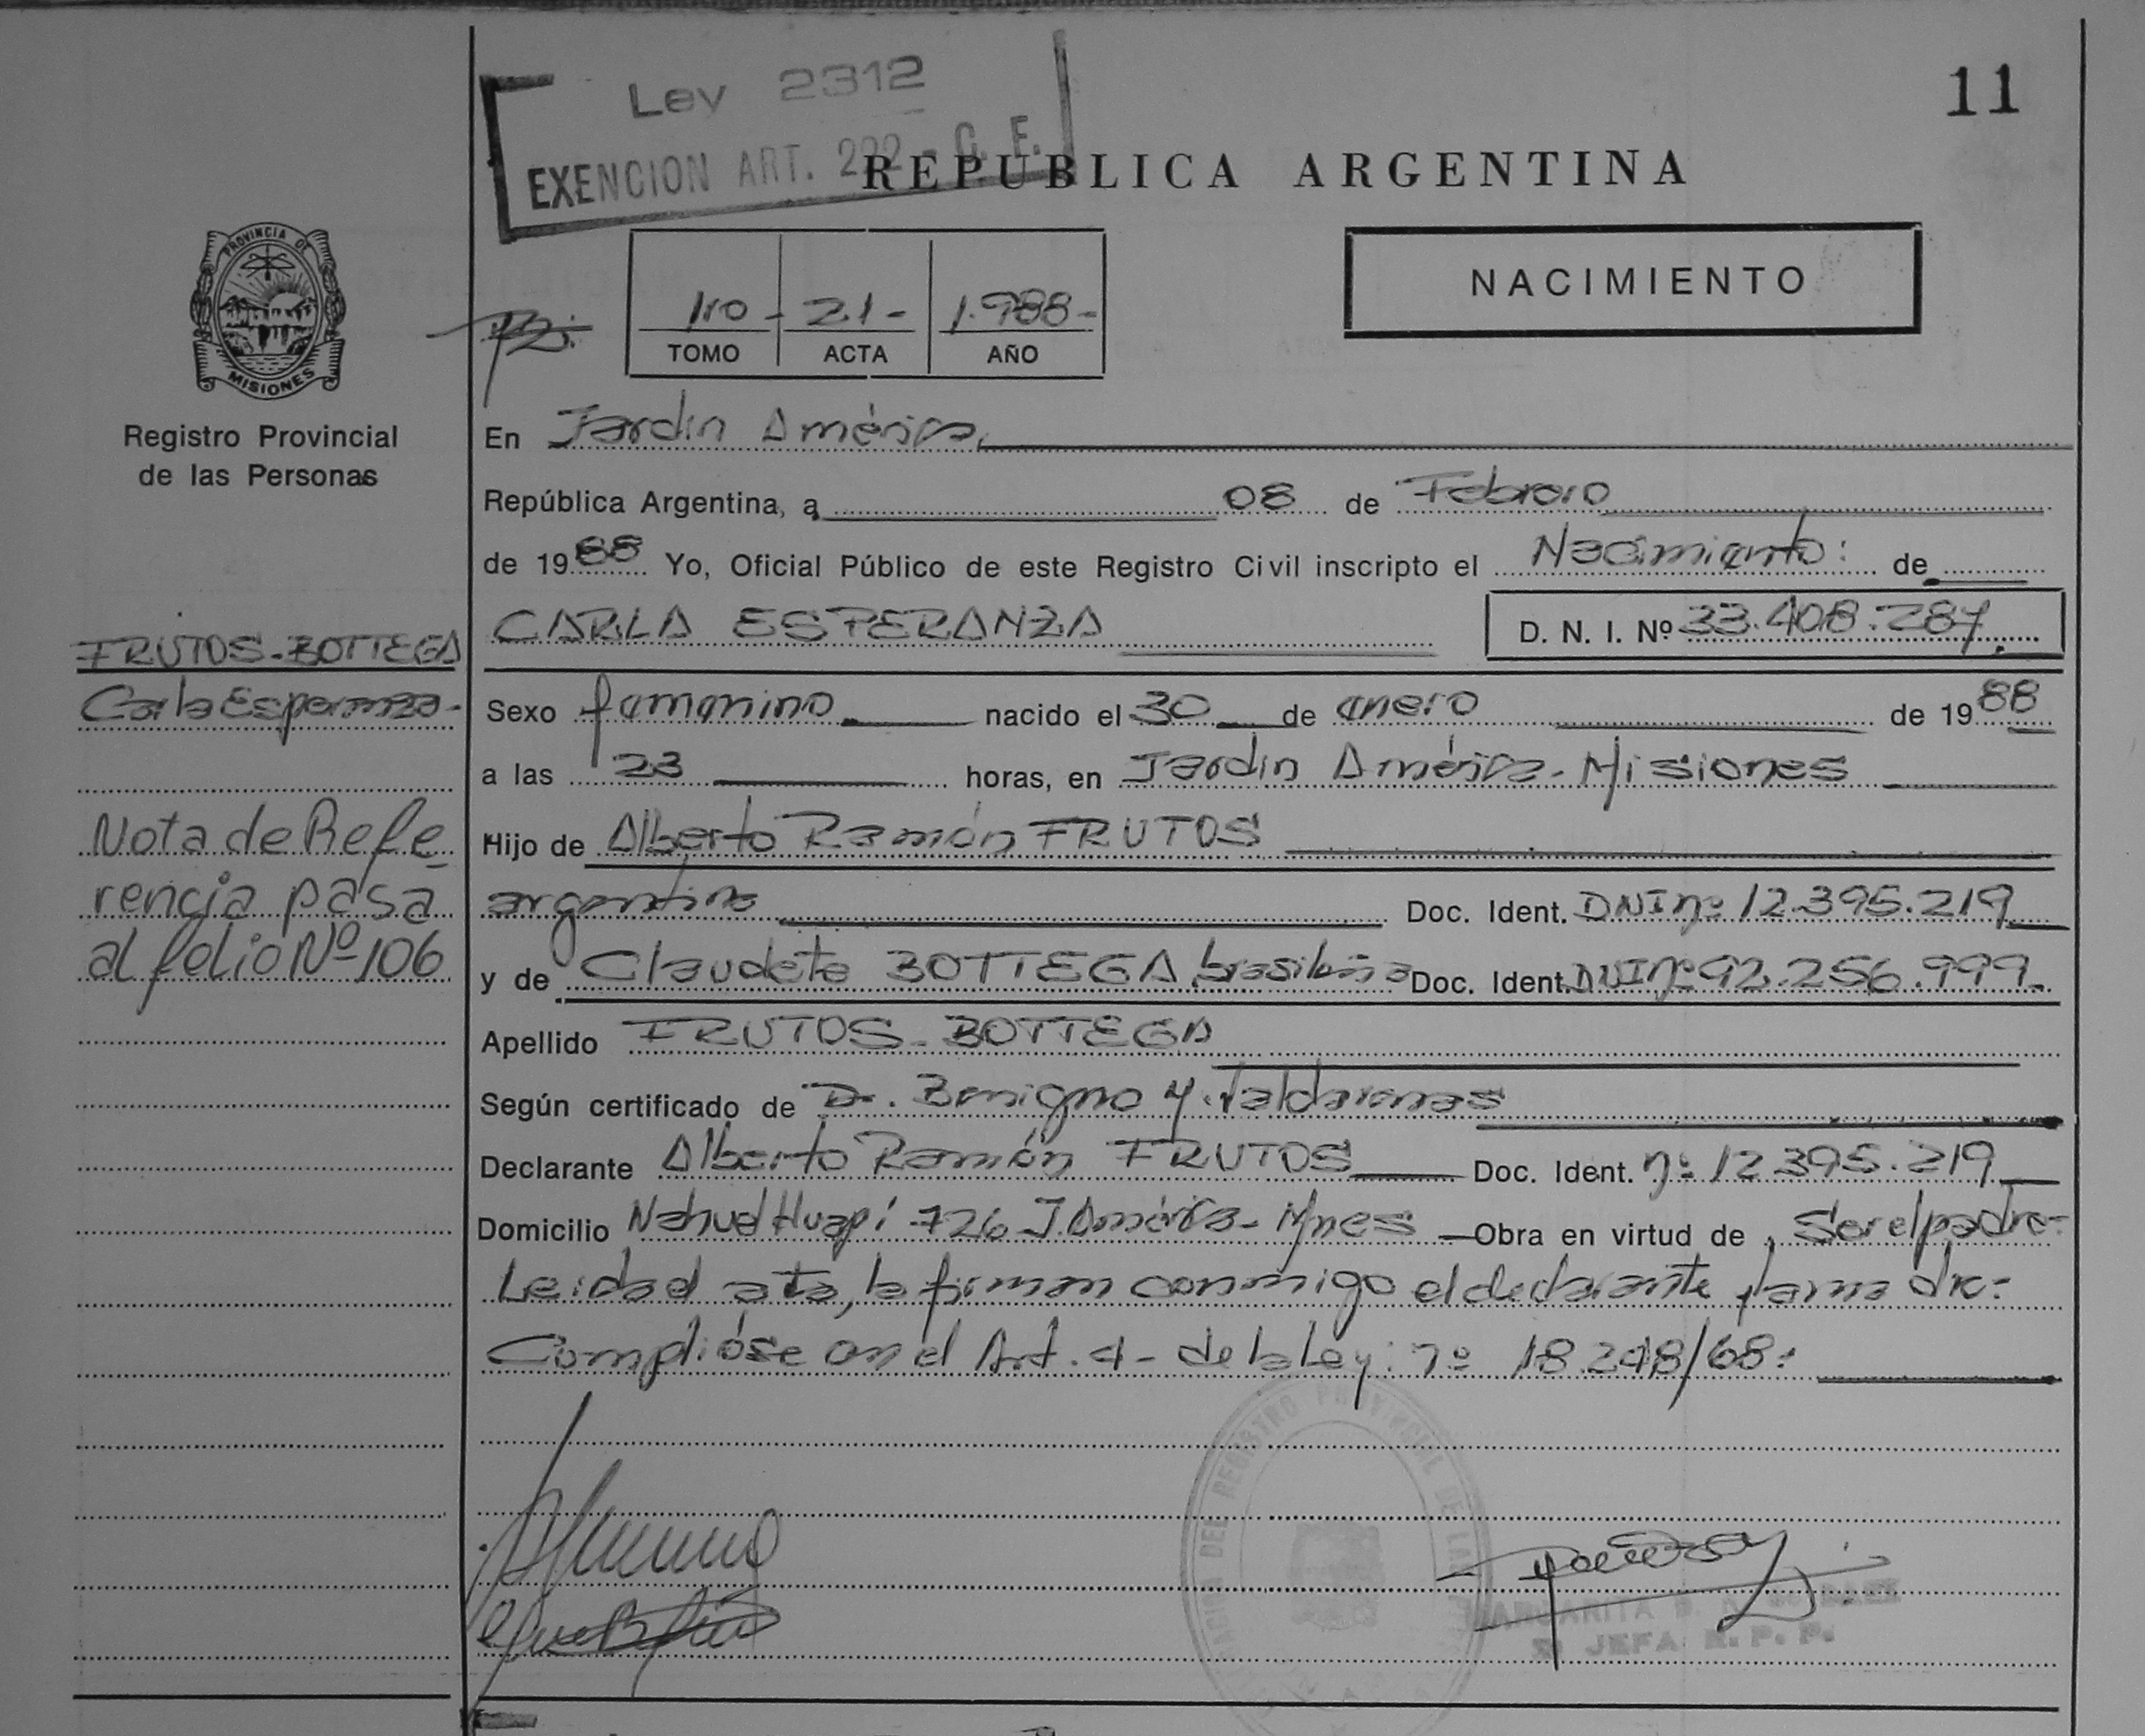 Ley 2312
EXENCION ART. 222 - C. F.
11
REPUBLICA ARGENTINA
PROVINCIA DE
MISIONES
Registro Provincial
de las Personas
110 - 21 - 1.988 -
TOMO ACTA AÑO
NACIMIENTO
En Jardín América.
República Argentina, a 08 de Febrero
de 1988 Yo, Oficial Público de este Registro Civil inscripto el Nacimiento: de
CARLA ESPERANZA D. N. I. Nº 33.408.287
FRUTOS-BOTTEGA
Carla Esperanza-
Sexo femenino nacido el 30 de enero de 1988
a las 23 horas, en Jardín América-Misiones
Nota de Refe-
rencia pasa
al folio Nº 106
Hijo de Alberto Ramón FRUTOS
argentino Doc. Ident. DNI nº 12.395.219
y de Claudete BOTTEGA, brasileña Doc. Ident. DNI nº 92.256.999.
Apellido FRUTOS-BOTTEGA
Según certificado de Dr. Benigno
Declarante Alberto Ramón FRUTOS Doc. Ident. nº 12.395.219
Domicilio Nahuel Huapí 726 J. América-Mnes Obra en virtud de Ser el padre-
Leida el acta, la firman conmigo el declarante y la madre-
Complióse en el Art. 4- de la Ley: nº 18.248/68:
REGISTRO PROVINCIAL DE LAS
MARGARITA
JEFA R. P. P.